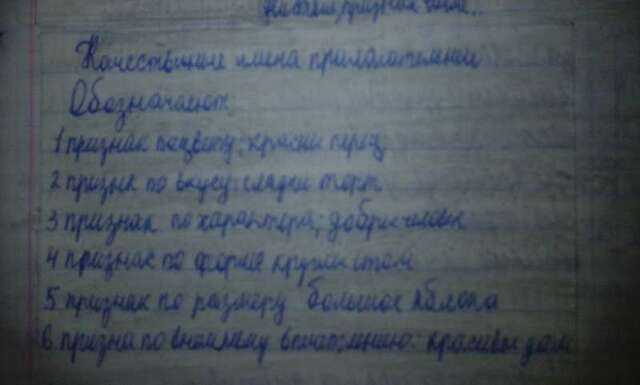 Качествщине имена прилагателние
Обозначают
1 признак по цвету: красни перец
2 признк по вкусу: сладки торт
3 признак по характера, добри человек
4 признас по форме кругли стол
5. признак по размеру большое яблока
6. призна по внешнему впичатлению: красивы дом